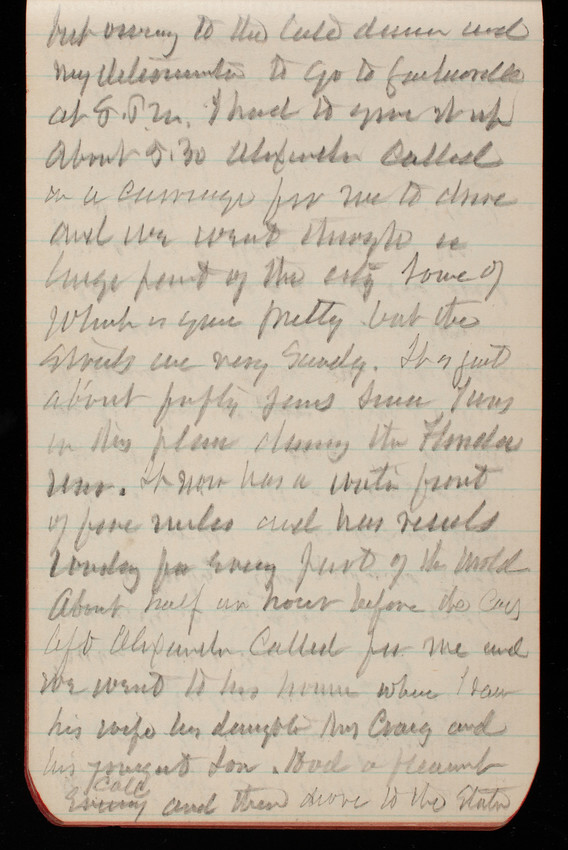 but owing to the late dinner and
my determination to go to
at 8. P.M. I had to give it up
About 5.30 Alexander Called
in a Carriage for me to drive
and we went through a
large part of the city Some of
Which is quite pretty but the
Streets are very Sandy. It is just
about fifty years Since I was
in this place during the Florida
War. It now has a water front
of five miles and has vessels
loading for every part of the World
About half an hour before the Cars
left Alexander Called for me and
We went to his home where I saw
his wife his daughter Mrs Craig and
his youngest Son. Had a pleasant
Call
Evening and then drove to the Station